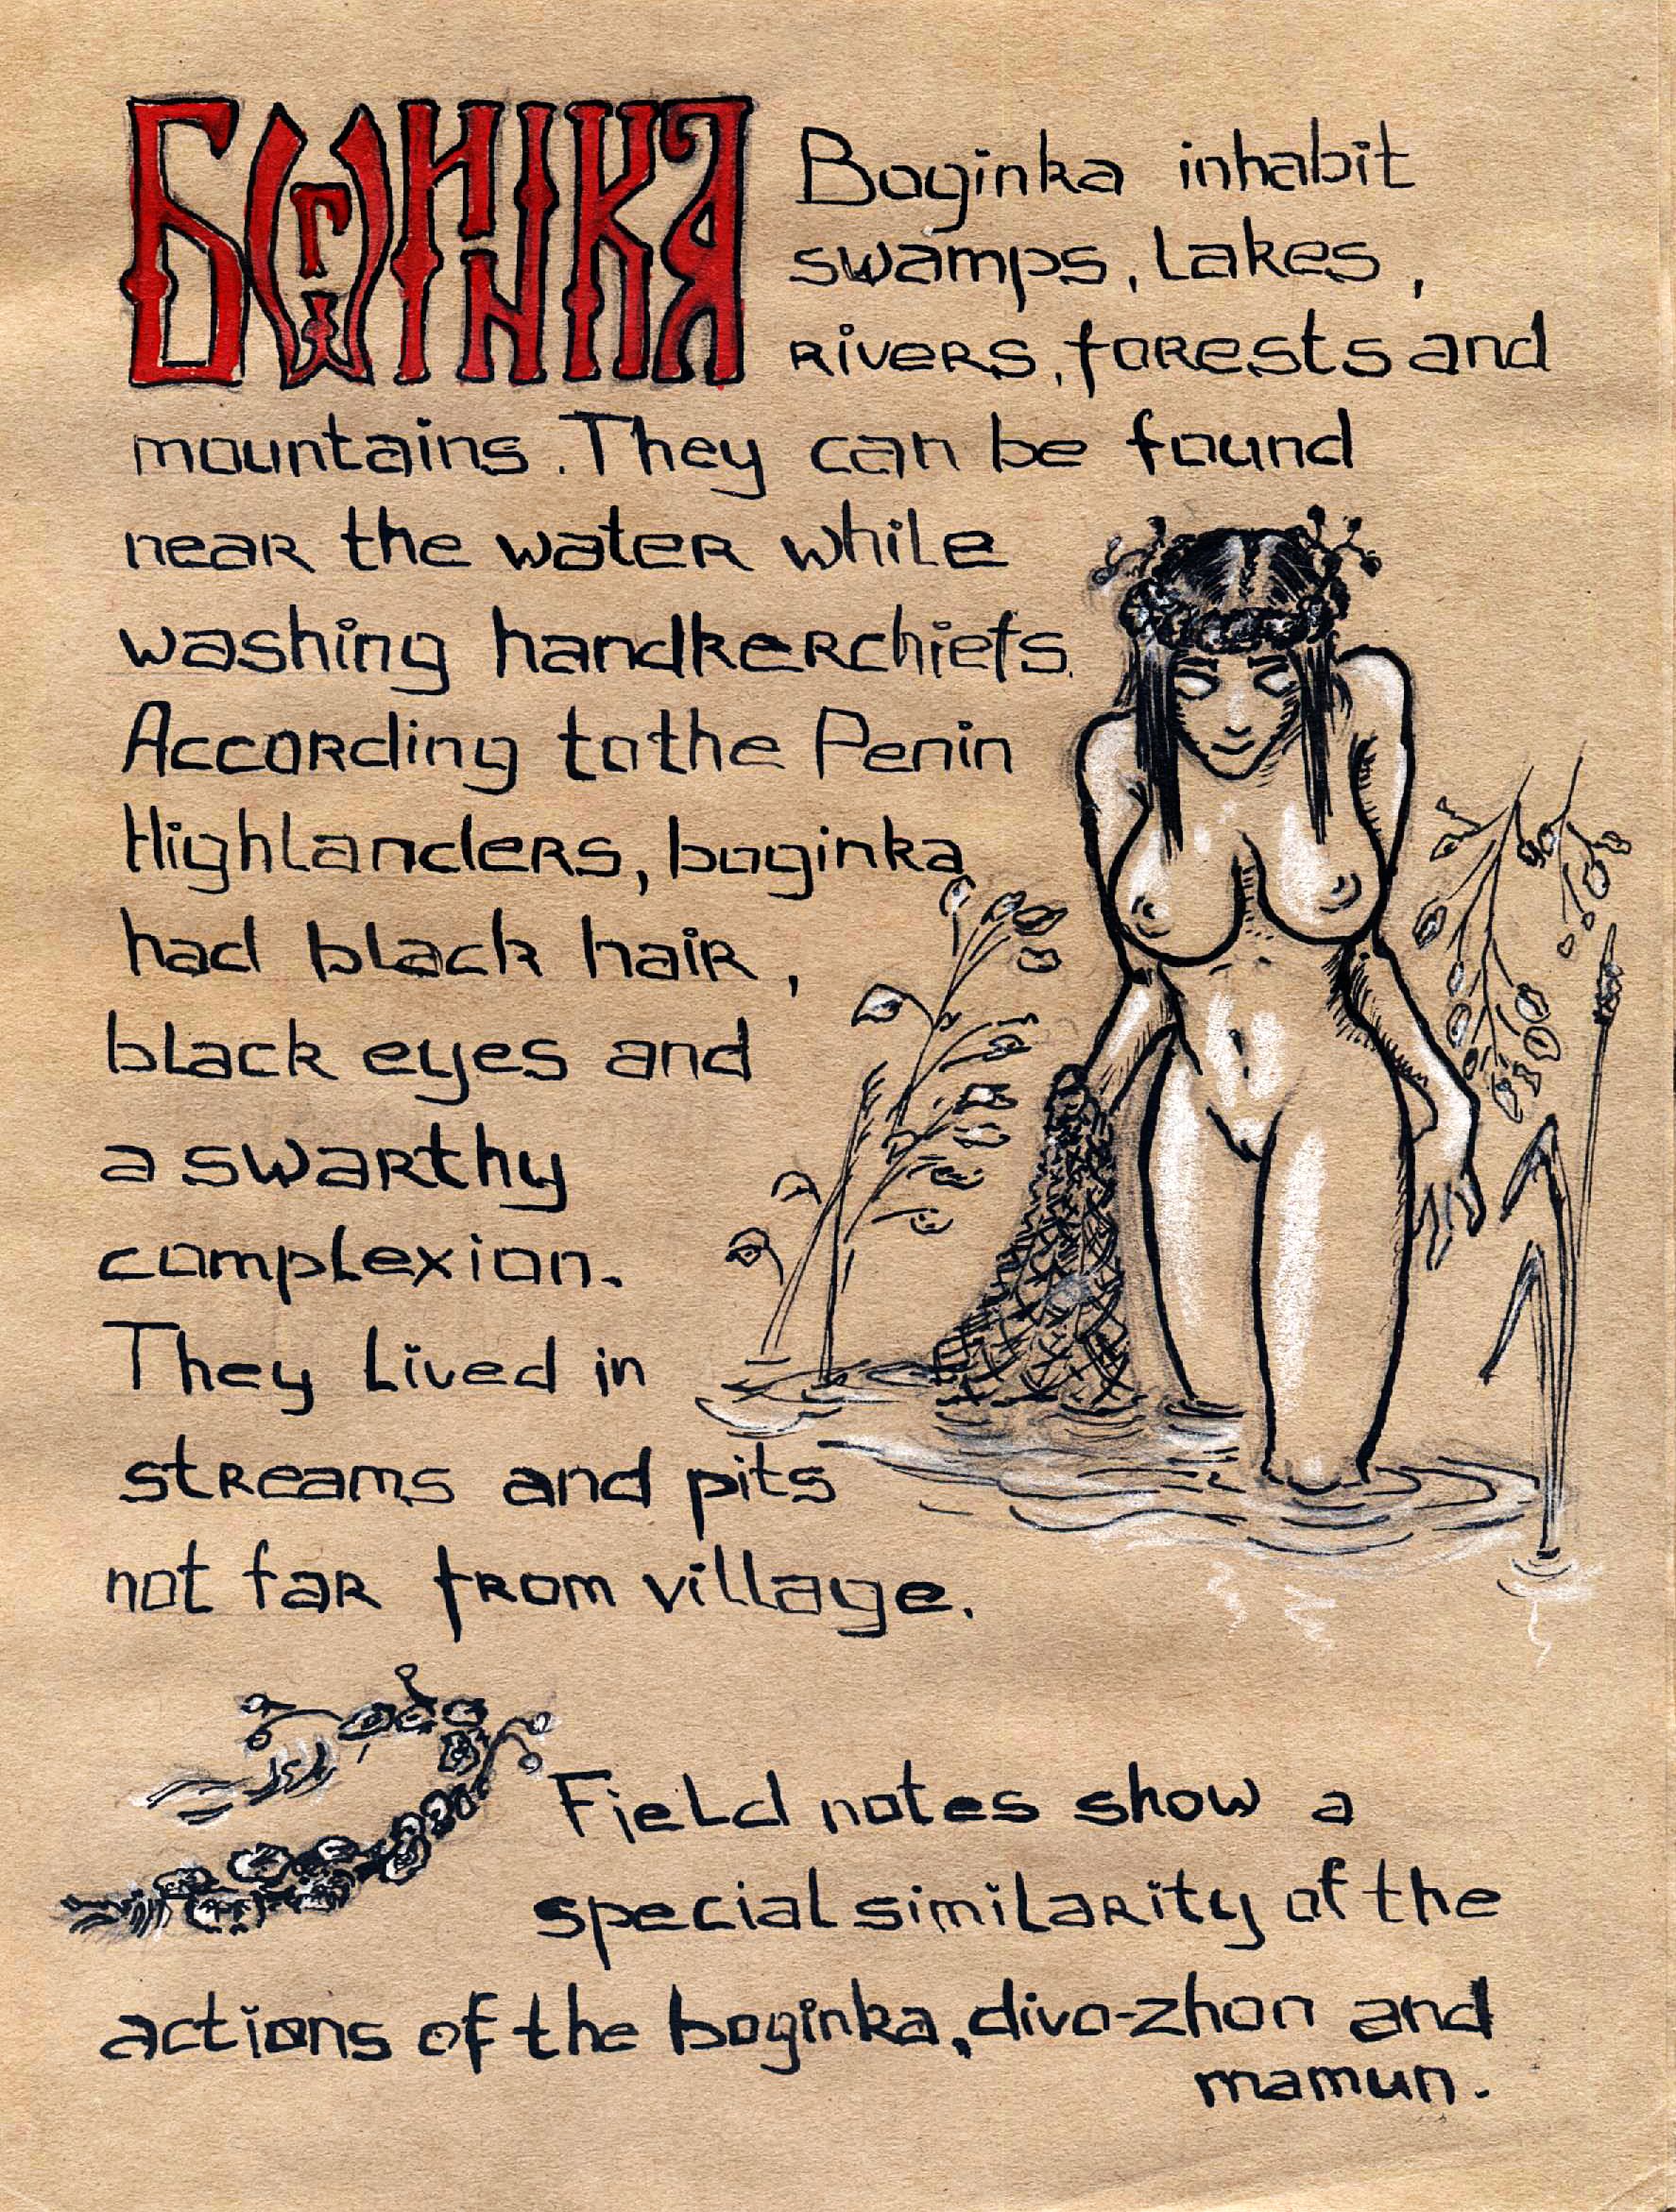 БОГИНКА
Boginka inhabit
swamps, Lakes,
rivers, forests and
mountains. They can be found
near the water while
washing handkerchiefs.
According to the Penin
Highlanders, boginka
had black hair,
black eyes and
a swarthy
complexion.
They Lived in
streams and pits
not far from village.
Field notes show a
special similarity of the
actions of the boginka, divo-zhon and
mamun.